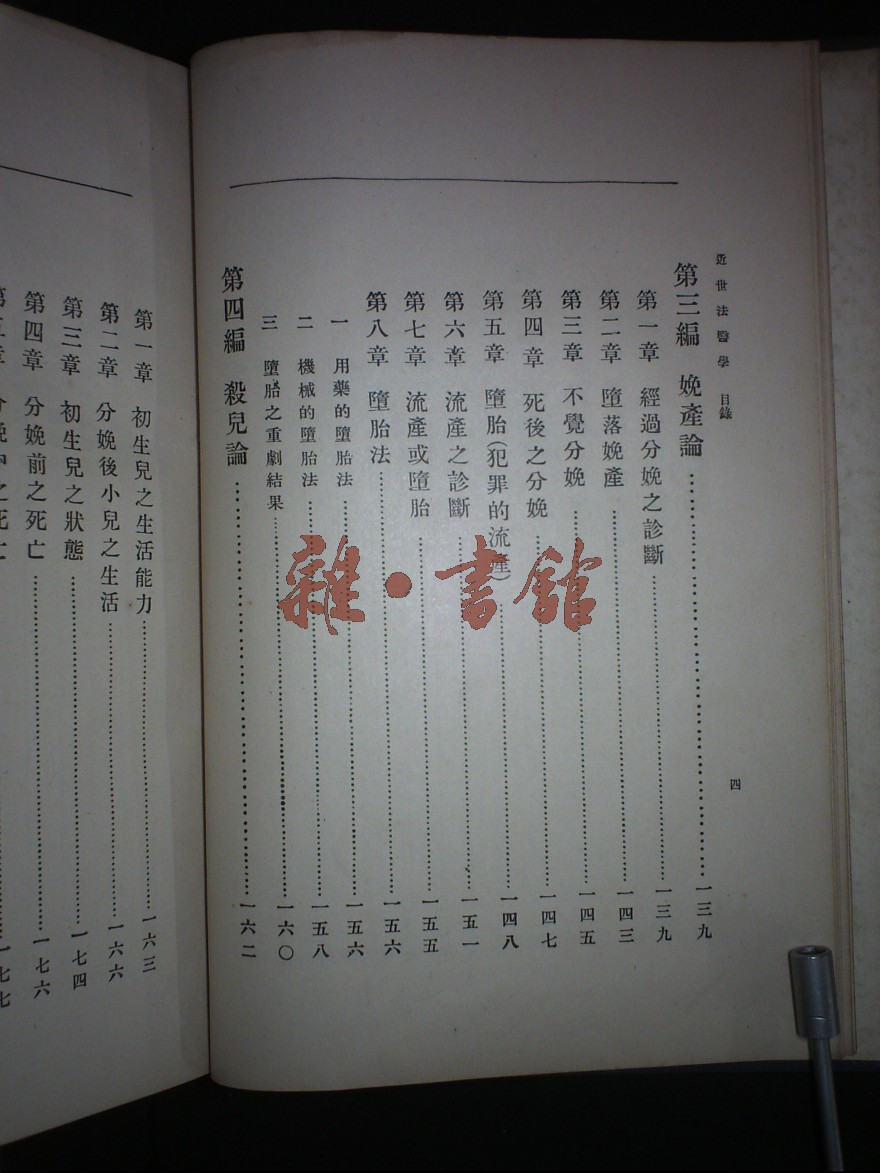 近世法醫學 目錄
四
第三編 娩產論……一三九
第一章 經過分娩之診斷……一三九
第二章 墮落娩產……一四三
第三章 不覺分娩……一四五
第四章 死後之分娩……一四七
第五章 墮胎(犯罪的流產)……一四八
第六章 流產之診斷……一五一
第七章 流產或墮胎……一五五
第八章 墮胎法……一五六
一 用藥的墮胎法……一五六
二 機械的墮胎法……一五八
三 墮胎之重劇結果……一六〇
第四編 殺兒論……一六二
第一章 初生兒之生活能力……一六三
第二章 分娩後小兒之生活……一六六
第三章 初生兒之狀態……一七四
第四章 分娩前之死亡……一七六
第五章 分娩中之死亡……一七七
雜·書館